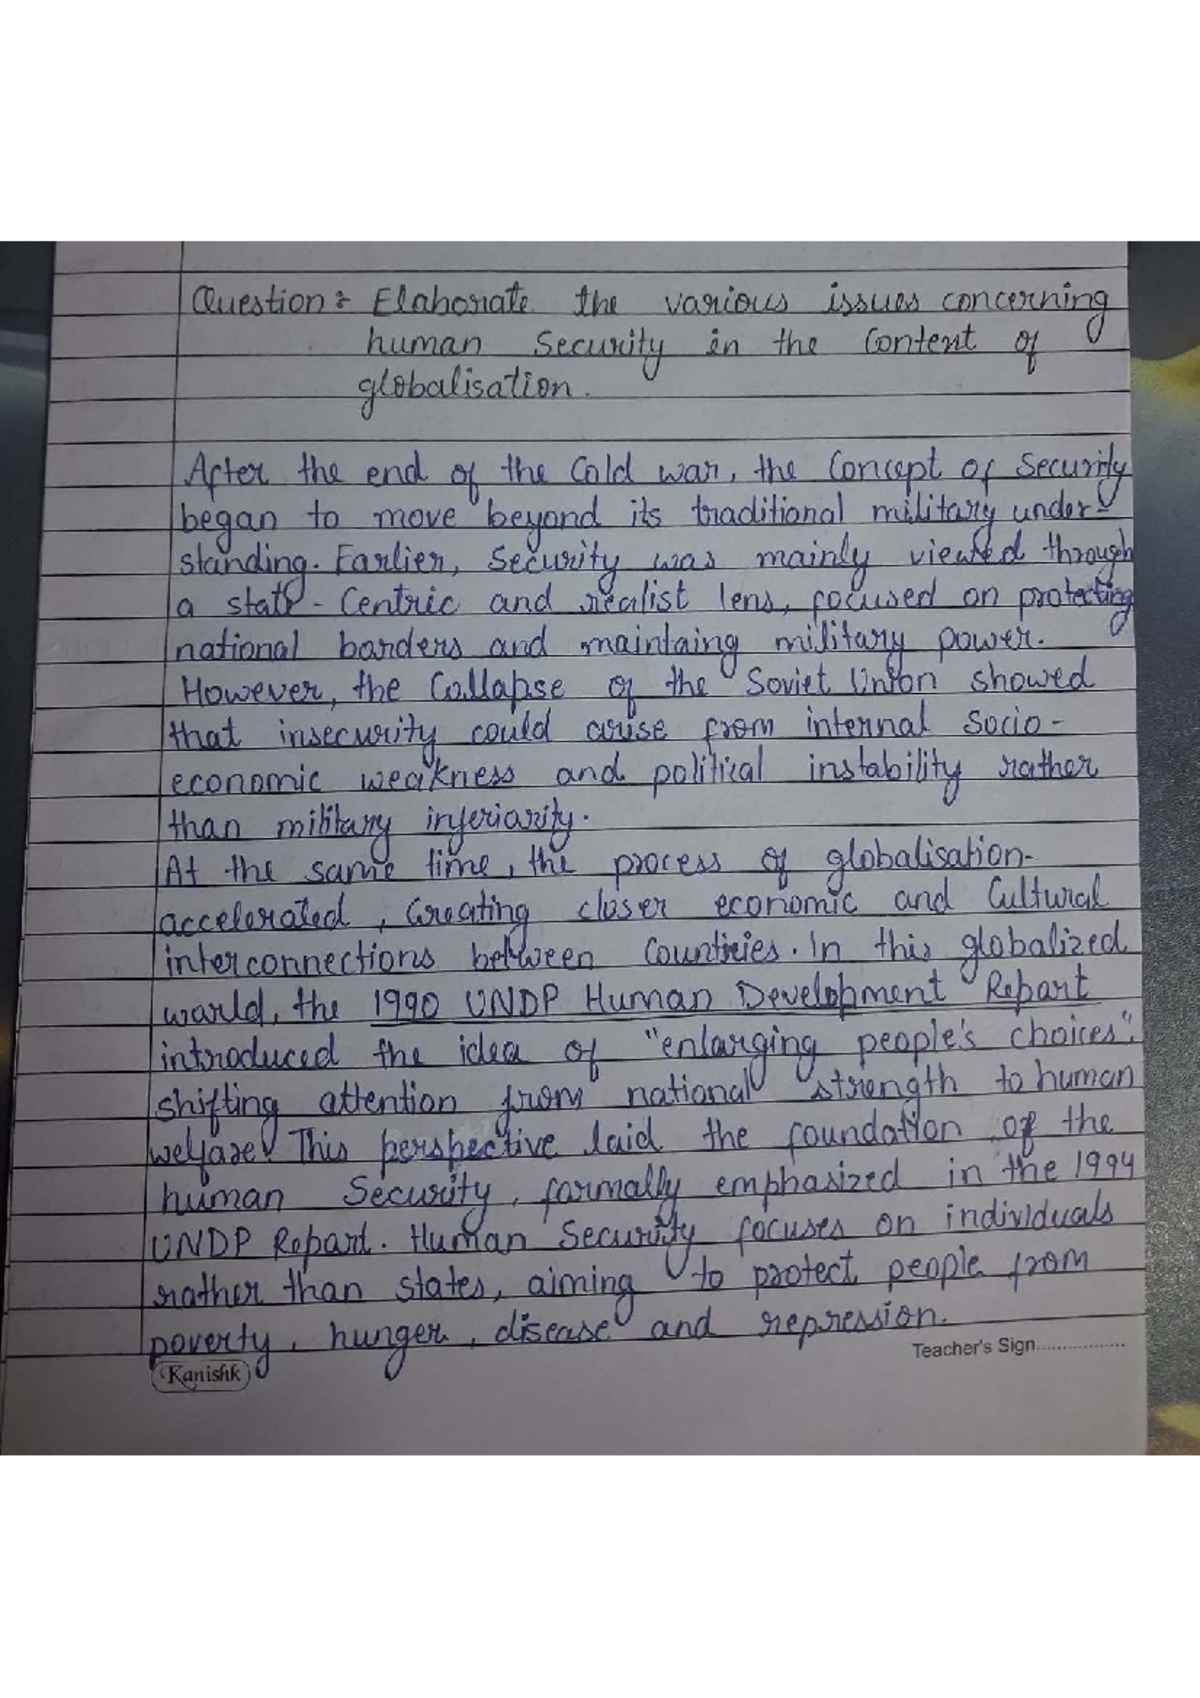 Question : Elaborate the various issues concerning
human Security in the Content of
globalisation.
After the end of the Cold war, the Concept of Security
began to move beyond its traditional military under-
standing. Earlier, Security was mainly viewed through
a state - Centric and realist lens, focused on protecting
national borders and maintaing military power.
However, the Collapse of the Soviet Union showed
that insecurity could arise from internal Socio-
economic weakness and political instability rather
than military inferiority.
At the same time, the process of globalisation-
accelerated, Creating closer economic and Cultural
interconnections between Countries. In this globalized
world, the 1990 UNDP Human Development Report
introduced the idea of "enlarging people's choices".
shifting attention from national strength to human
welfare. This perspective laid the foundation of the
human Security, formally emphasized in the 1994
UNDP Report. Human Security focuses on individuals
rather than states, aiming to protect people from
poverty, hunger, disease and repression.
Teacher's Sign.................
Kanishk